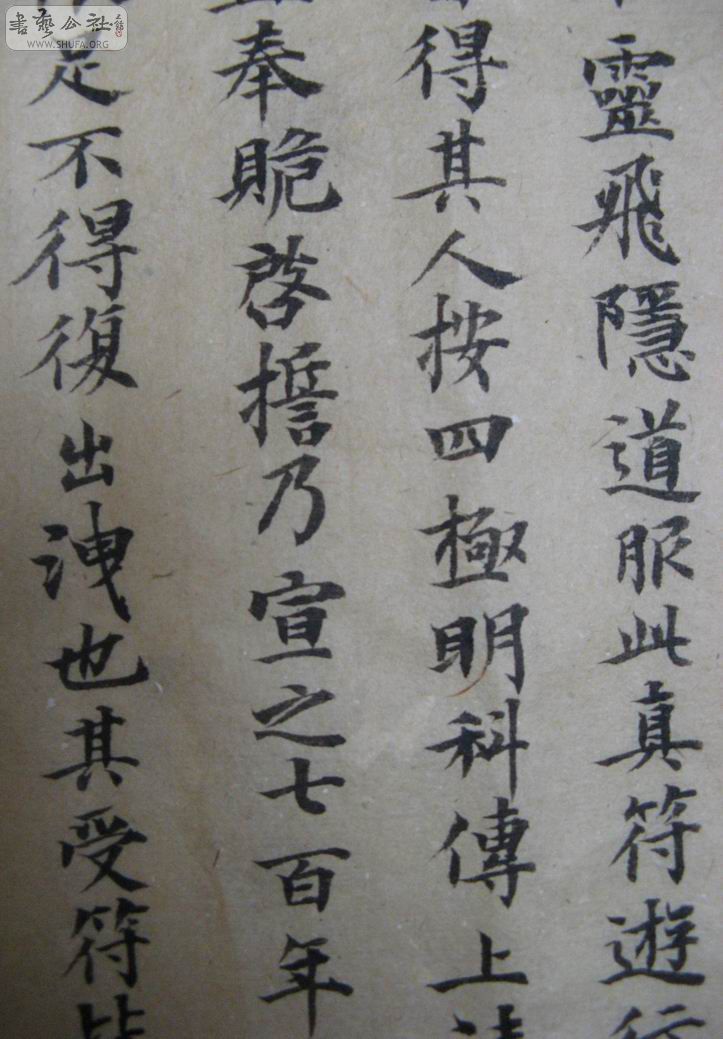 靈飛隱道服此真符遊行
得其人按四極明科傳上
奉脆啓擔乃宣之七百年
足不得復出洩也其受符皆
書藝公社
WWW.SHUFA.ORG